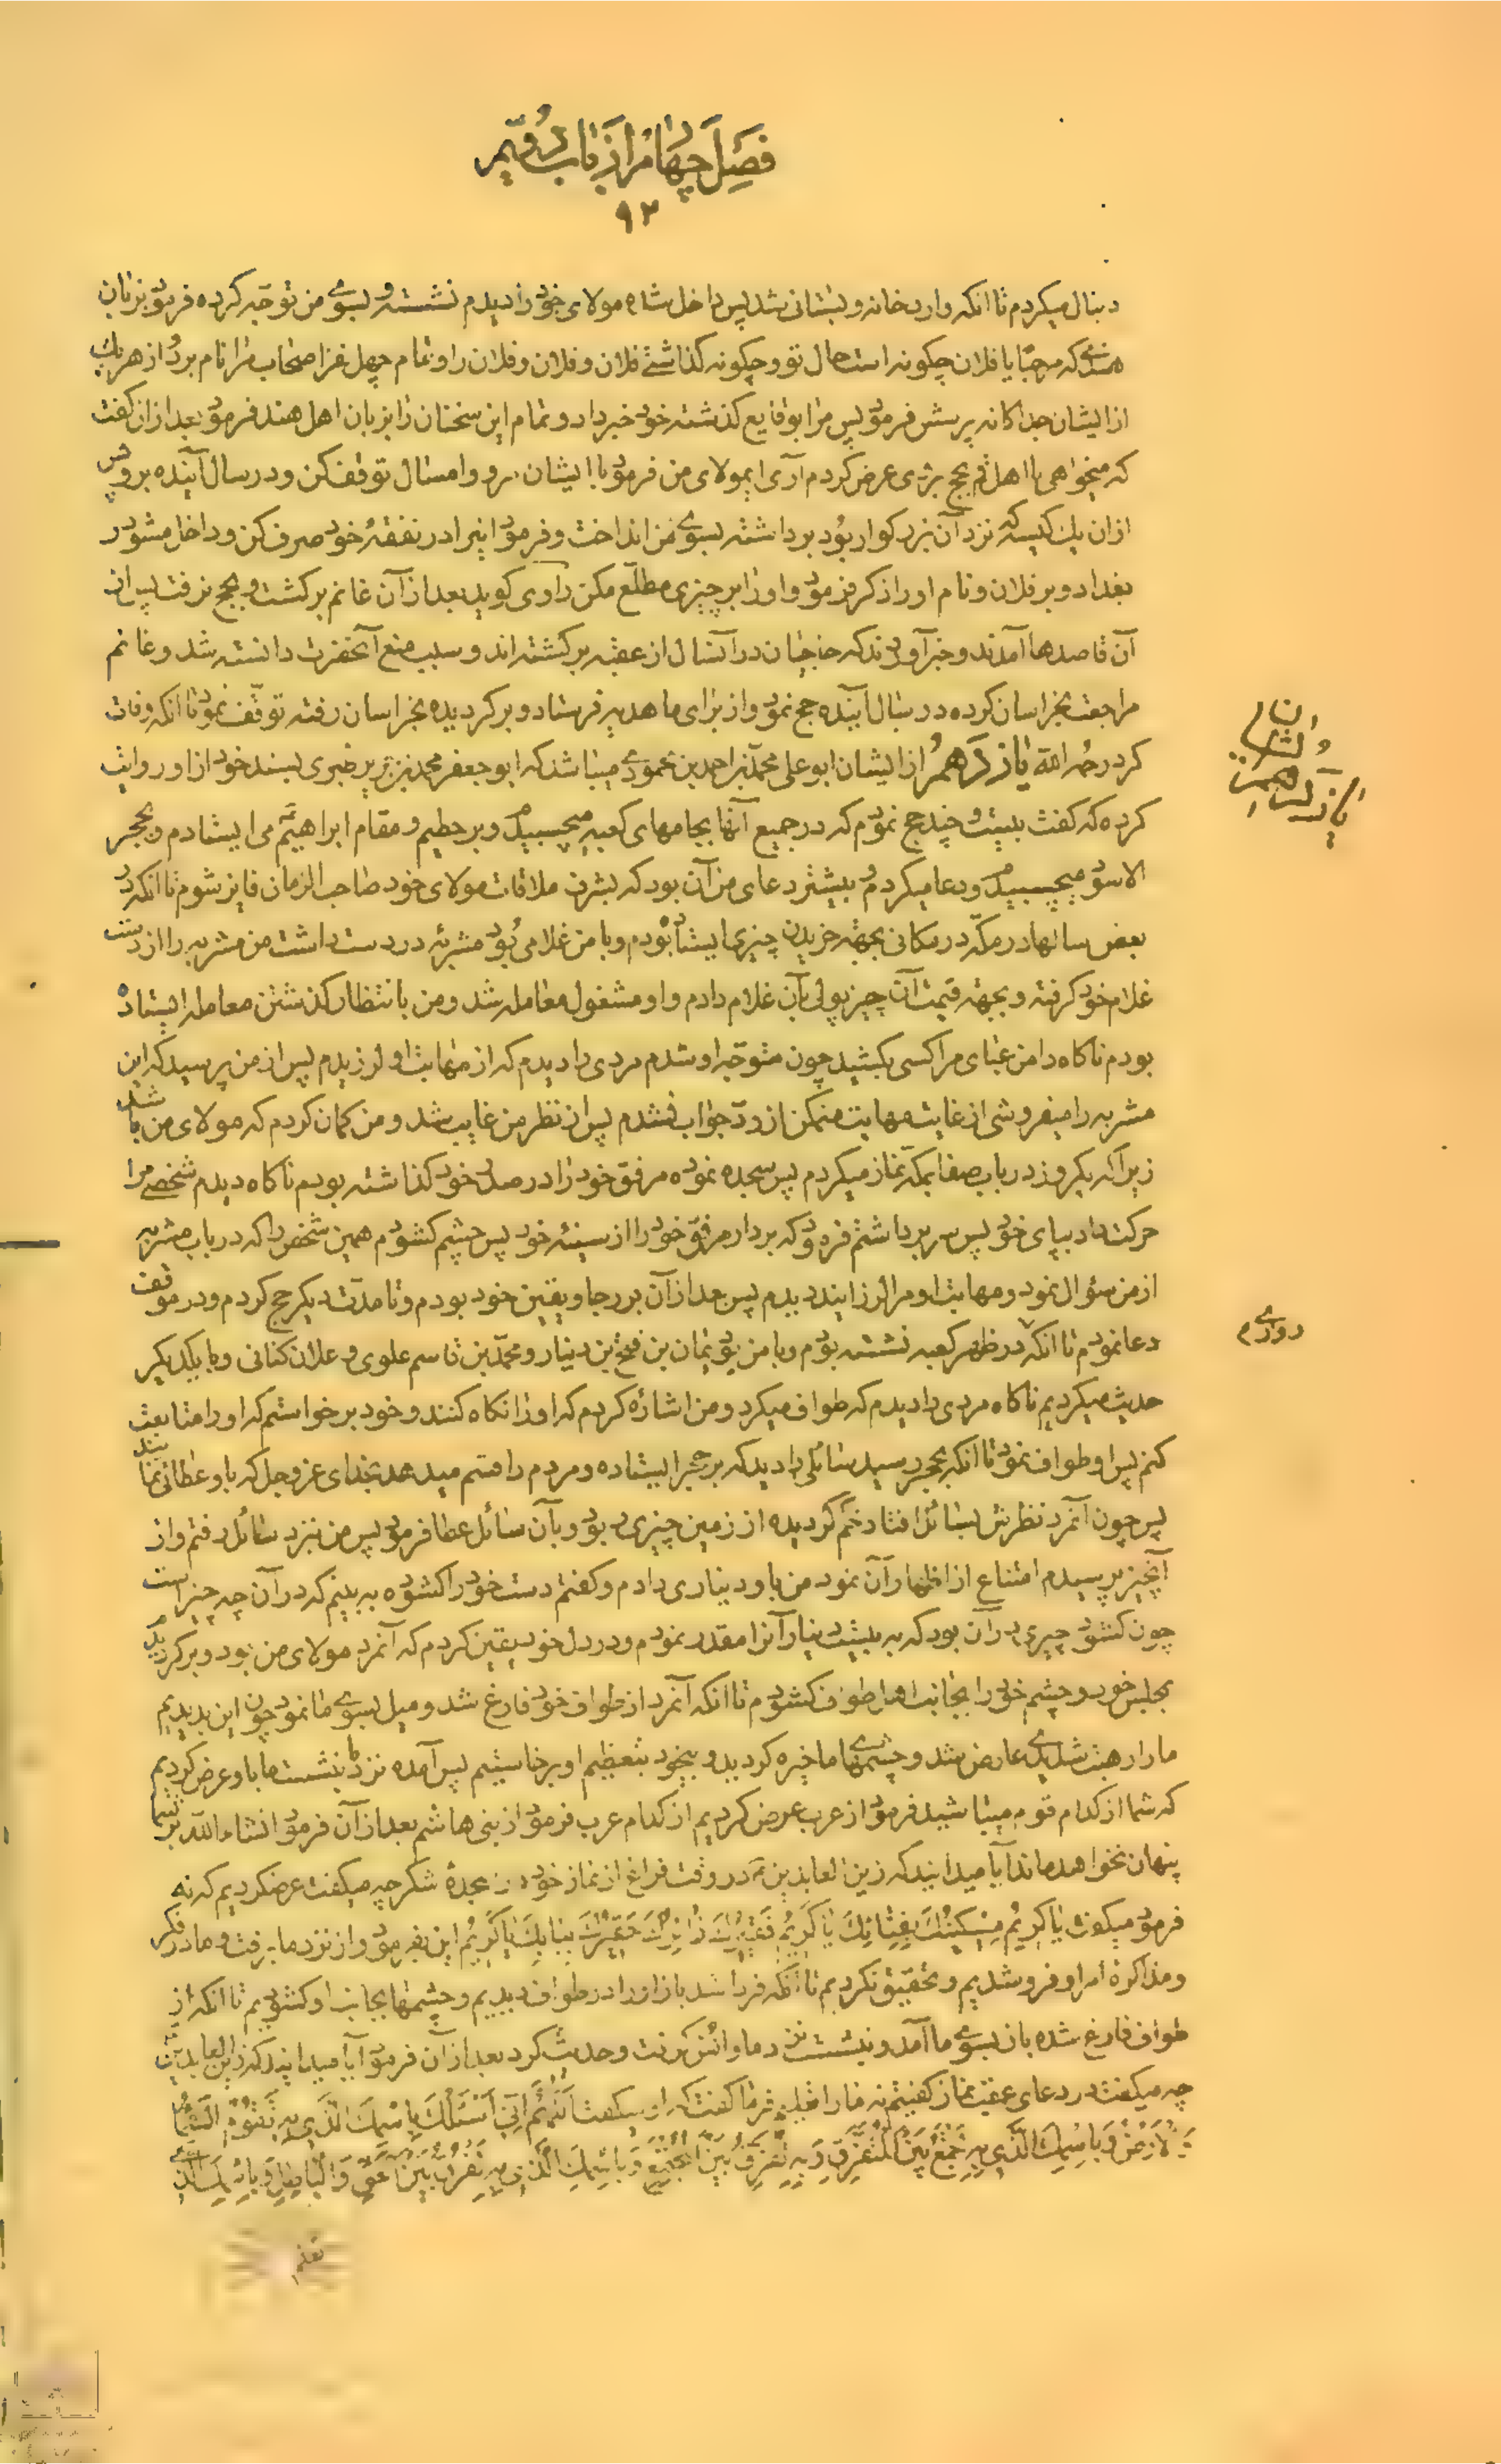 فصل چهارم از باب دویّم
۹۲
دنبال میکردم تا آنکه وارد خانه و بستانی شد پس داخل شده مولای خود را دیدم نشسته و بسوی من توجّه کرده فرمود بزبان
هندی که مرحبا یا فلان چگونه است حال تو و چگونه گذاشتی فلان و فلان و فلان را و تمام چهل نفر اصحاب مرا نام برد و از هر یک
از ایشان جداگانه پرسش فرمود پس مرا بوقایع گذشته خود خبر داد و تمام این سخنان را بزبان اهل هند فرمود بعد از آن گفت
که میخواهی با اهل قم بحج بروی عرض کردم آری ای مولای من فرمود با ایشان مرو و امسال توقف کن و در سال آینده برو پس
از آن یک کیسه که نزد آن بزرگوار بود برداشته بسوی من انداخت و فرمود اینرا در نفقهٔ خود صرف کن و داخل مشو در
بغداد و بر فلان و نام او را ذکر فرمود و او را بر چیزی مطلّع مکن راوی گوید بعد از آن غانم برگشت و بحج نرفت پس از
آن قاصدها آمدند و خبر آوردند که حاجیان در آنسال از عقبه برگشته اند و سبب منع آنحضرت دانسته شد و غانم
مراجعت بخراسان کرده در سال آینده حج نمود و از برای ما هدیه فرستاد و برگردیده بخراسان رفته توقّف نمود تا آنکه وفات
کرد رحمه الله یازدهم از ایشان ابو علی محمّد بن احمد بن محمودی میباشد که ابو جعفر محمد بن جریر طبری بسند خود از او روایت
کرده که گفت بیست و چند حج نمودم که در جمیع آنها بجامهای کعبه میچسبیدم و بر حطیم و مقام ابراهیم می ایستادم و بحجر
الاسود میچسبیدم و دعا میکردم و بیشتر دعای من آن بود که بشرف ملاقات مولای خود صاحب الزمان فایز شوم تا آنکه در
بعض سالها در مکّه در مکانی بجهته خریدن چیزی ایستاده بودم و با من غلامی بود مشربهٔ در دست داشت من مشربه را از دست
غلام خود گرفته و بجهته قیمت آن چیز پولی بآن غلام دادم و او مشغول معامله شد و من بانتظار گذشتن معامله ایستاده
بودم ناگاه دامن عبای مرا کسی بکشید چون متوجّه او شدم مردی را دیدم که از مهابت او لرزیدم پس از من پرسید که این
مشربه را میفروشی از غایت مهابت متمکن از ردّ جواب نشدم پس از نظر من غایب شد و من گمان کردم که مولای من باشد
زیرا که یکروز در باب صفا بمکه نماز میکردم پس سجده نموده مرفق خود را در صدر خود گذاشته بودم ناگاه دیدم شخصی مرا
حرکت داد بپای خود پس سر برداشتم فرمود که بردار مرفق خود را از سینهٔ خود پس چشم گشودم همین شخص را که در باب مشربه
از من سؤال نمود و مهابت او مرا لرزانید دیدم پس بعد از آن بر رجا و یقین خود بودم و تا مدّت دیگر حج کردم و در موقف
دعا نمودم تا آنکه در ظهر کعبه نشسته بودم و با من بود یمان بن فتح بن دینار و محمّد بن قاسم علوی و علان کنانی و با یکدیگر
حدیث میکردیم ناگاه مردی را دیدم که طواف میکرد و من اشاره کردم که او را نگاه کنند و خود برخواستم که او را متابعت
کنم پس او طواف نمود تا آنکه بحجر رسید سائلی را دید که بر حجر ایستاده و مردم را قسم میدهد بخدای عز و جل که باو عطائی نمایند
پس چون آنمرد نظرش بسائل افتاد خم گردیده از زمین چیزی ربود و بآن سائل عطا فرمود پس من نزد سائل رفتم و از
آنچیز پرسیدم امتناع از اظهار آن نمود من باو دیناری دادم و گفتم دست خود را گشوده به بینم که در آن چه چیز است
چون گشود چیزی در آن بود که به بیست دینار آنرا مقدر نمودم و در دل خود یقین کردم که آنمرد مولای من بود و برگردیدم
بمجلس خود و چشم خود را بجانب اهل طواف گشودم تا آنکه آنمرد از طواف خود فارغ شد و میل بسوی ما نمود چون این بدیدیم
ما را رهبت شدیدی عارض شد و چشمهای ما خیره گردید و بیخود بتعظیم او برخاستیم پس آمده نزد ما بنشست ما باو عرض کردیم
که شما از کدام قوم میباشید فرمود از عرب عرض کردیم از کدام عرب فرمود از بنی هاشم بعد از آن فرمود انشاء الله بر شما
پنهان نخواهد ماند آیا میدانید که زین العابدین ع در وقت فراغ از نماز خود در سجدهٔ شکر چه میگفت عرضکردیم که نه
فرمود میگفت یا کَریمُ مِسْکینُکَ بِفِنائِکَ یا کَریمُ فَقیرُکَ زائِرُکَ حَقیرُکَ بِبابِکَ یا کَریمُ این بفرمود و از نزد ما برفت و ما در فکر
و مذاکرهٔ امر او فرو شدیم و تحقیق نکردیم تا آنکه فردا شد باز او را در طواف دیدیم و چشمها بجانب او گشودیم تا آنکه از
طواف فارغ شده باز بسوی ما آمد و بنشست نزد ما و انس گرفت و حدیث کرد بعد از آن فرمود آیا میدانید که زین العابدین
چه میگفت در دعای عقب نماز گفتیم نه ما را تعلیم فرما گفت که او میگفت اَللّهُمَّ اِنّی اَسْئَلُکَ بِاسْمِکَ الَّذی بِهِ تَقُومُ السَّماءُ
وَ الْاَرْضُ وَ بِاسْمِکَ الَّذی بِهِ تَجْمَعُ بَیْنَ الْمُتَفَرِّقِ وَ بِهِ تُفَرِّقُ بَیْنَ الْمُجْتَمِعِ وَ بِاسْمِکَ الَّذی بِهِ تُفَرِّقُ بَیْنَ الْحَقِّ وَ الْباطِلِ وَ بِاسْمِکَ الَّذی
تعلم
یازدهم